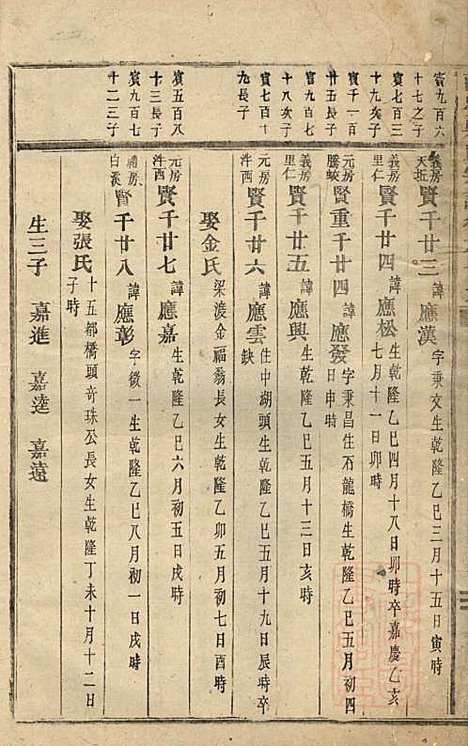 賓九百六
十七之子
義房
天坵
賢千廿三 諱應漢 字秉文生乾隆乙巳三月十五日寅時
賓七百三
十九亥子
義房
里仁
賢千廿四 諱應松 生乾隆乙巳四月十八日卯時卒嘉慶乙亥
七月十一日卯時
賓千一百
廿五長子
元房
賢重千廿四 諱應發 字秉昌生石龍橋生乾隆乙巳五月初四
日申時
賓九百七
十八次子
義房
里仁
賢千廿五 諱應興 生乾隆乙巳五月十三日亥時
賓七百十
九長子
元房
泮西
賢千廿六 諱應雲 住中湖頭生乾隆乙巳五月十九日辰時卒
缺
娶金氏 梁渡金福翁長女生乾隆乙卯五月初七日酉時
賓五百八
十三長子
元房
泮西
賢千廿七 諱應嘉 生乾隆乙巳六月初五日戌時
賓九百七
十二三子
禮房
白溪
賢千廿八 諱應彰 字徵一生乾隆乙巳八月初一日戌時
娶張氏 十五都橋頭奇珠公長女生乾隆丁未十月十二日
子時
生三子 嘉進 嘉逵 嘉遠